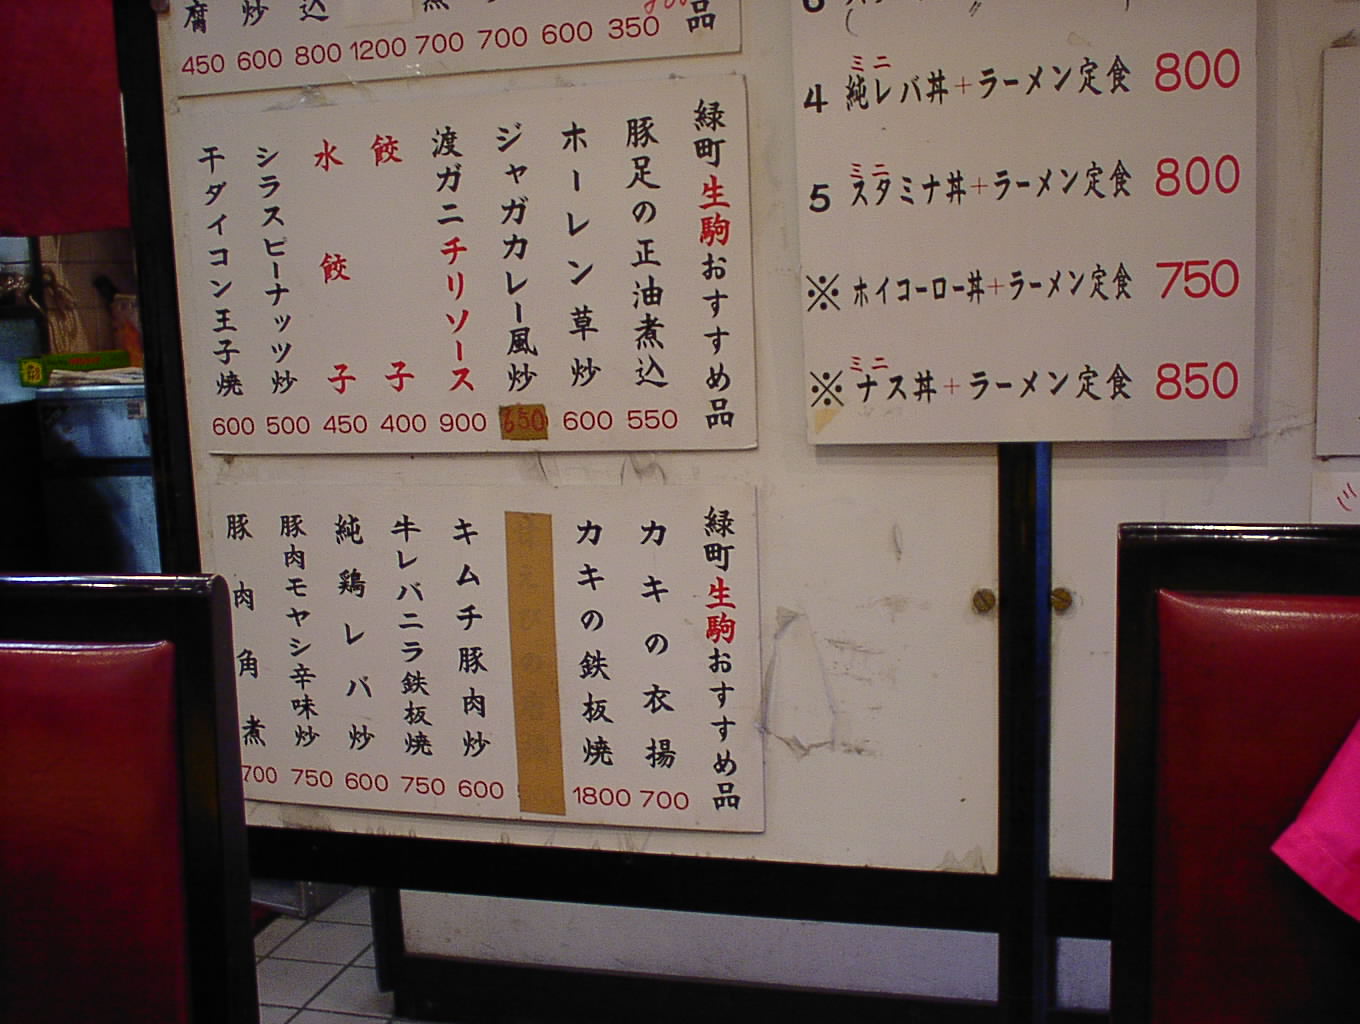 450 600 800 1200 700 700 600 350
緑町生駒おすすめ品
豚足の正油煮込 550
ホーレン草炒 600
ジャガカレー風炒 650
渡ガニチリソース 900
餃子 400
水餃子 450
シラスピーナッツ炒 500
干ダイコン玉子焼 600
緑町生駒おすすめ品
カキの衣揚 700
カキの鉄板焼 1800
キムチ豚肉炒 600
牛レバニラ鉄板焼 750
純鶏レバ炒 600
豚肉モヤシ辛味炒 750
豚肉角煮 700
ミニ
4 純レバ丼+ラーメン定食 800
ミニ
5 スタミナ丼+ラーメン定食 800
※ ホイコーロー丼+ラーメン定食 750
ミニ
※ ナス丼+ラーメン定食 850